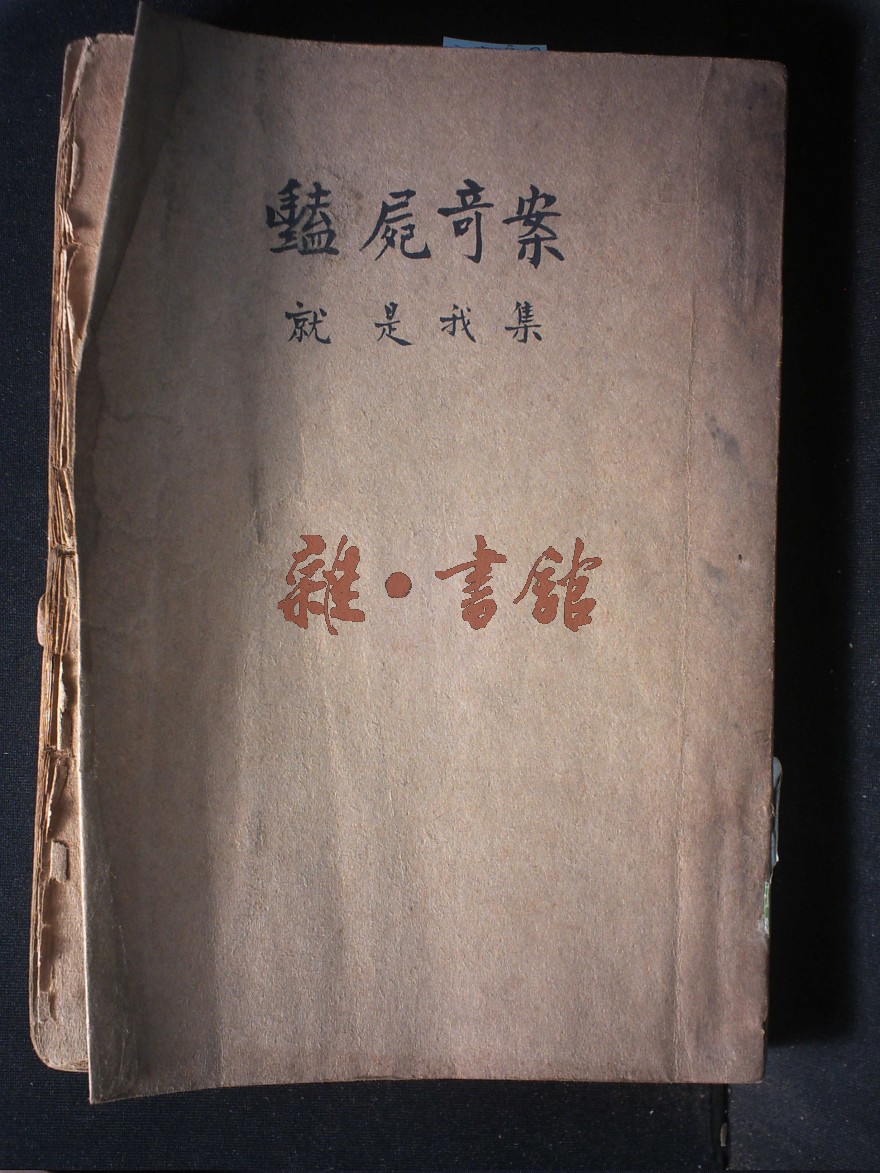 豔屍竒案
就是我集
雜·書館